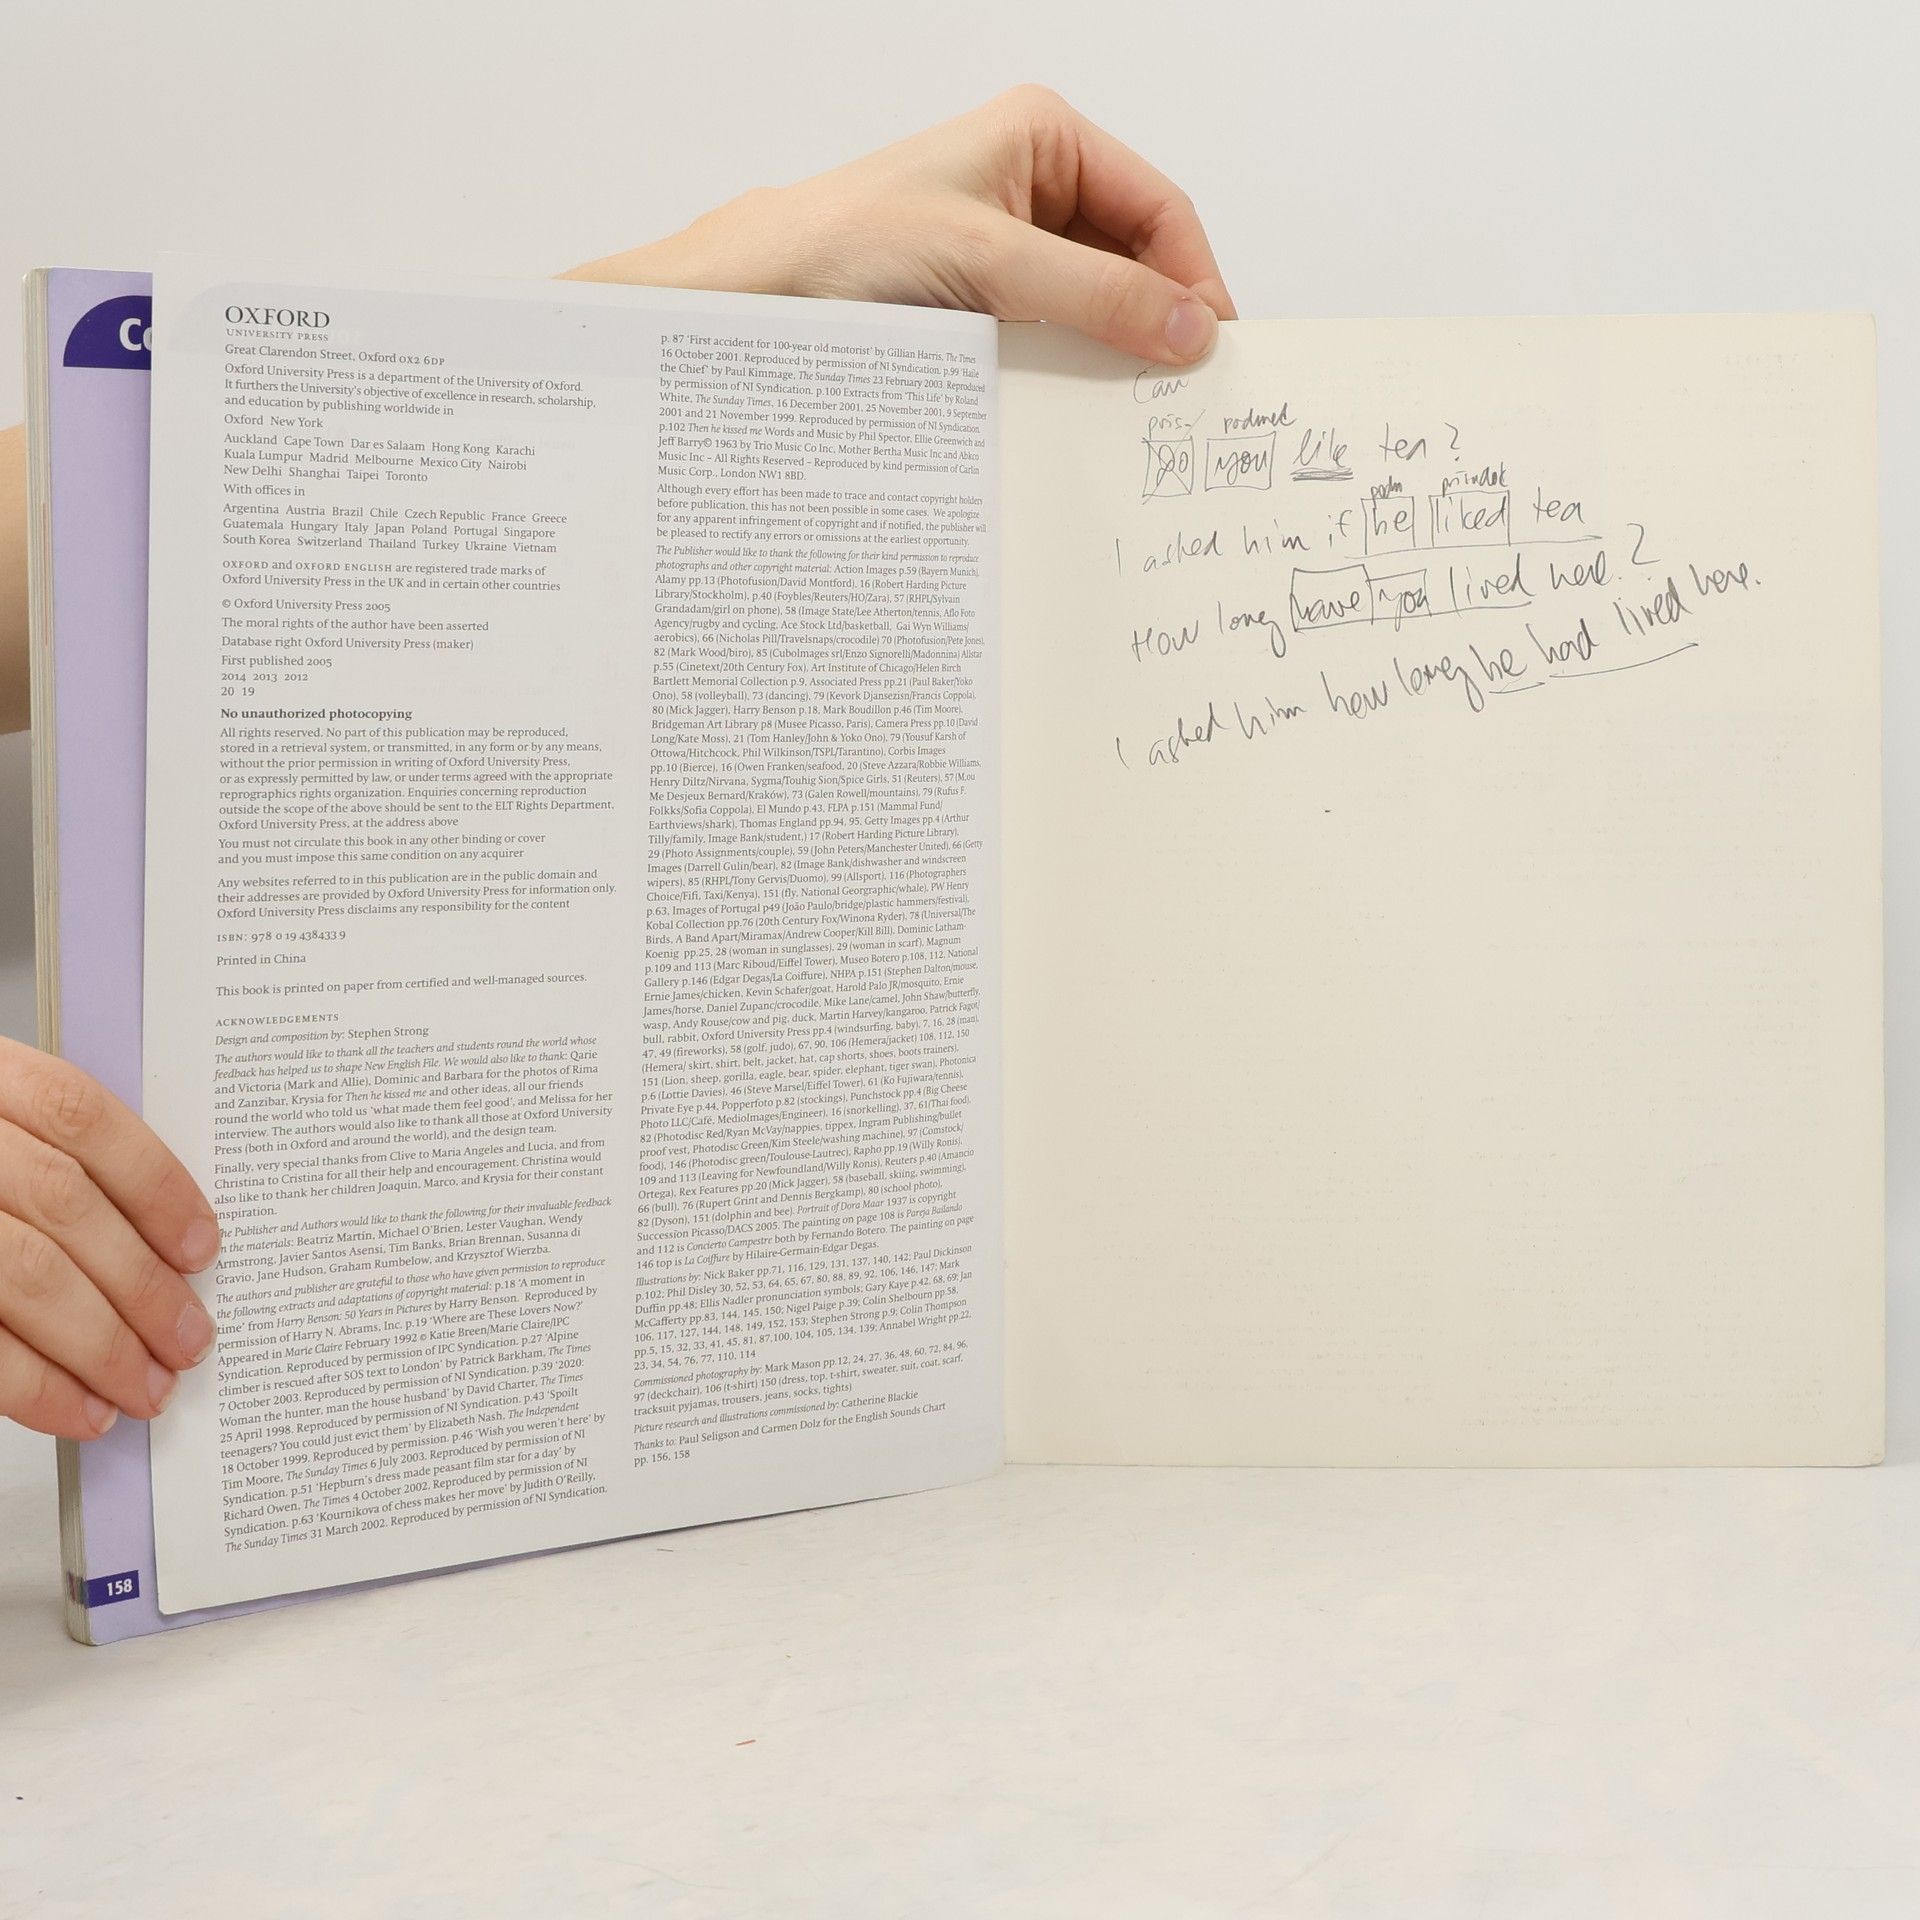 Co
158
OXFORD
UNIVERSITY PRESS
Great Clarendon Street, Oxford OX2 6DP
Oxford University Press is a department of the University of Oxford.
It furthers the University's objective of excellence in research, scholarship,
and education by publishing worldwide in
Oxford New York
Auckland Cape Town Dar es Salaam Hong Kong Karachi
Kuala Lumpur Madrid Melbourne Mexico City Nairobi
New Delhi Shanghai Taipei Toronto
With offices in
Argentina Austria Brazil Chile Czech Republic France Greece
Guatemala Hungary Italy Japan Poland Portugal Singapore
South Korea Switzerland Thailand Turkey Ukraine Vietnam
OXFORD and OXFORD ENGLISH are registered trade marks of
Oxford University Press in the UK and in certain other countries
© Oxford University Press 2005
The moral rights of the author have been asserted
Database right Oxford University Press (maker)
First published 2005
2014 2013 2012
20 19
No unauthorized photocopying
All rights reserved. No part of this publication may be reproduced,
stored in a retrieval system, or transmitted, in any form or by any means,
without the prior permission in writing of Oxford University Press,
or as expressly permitted by law, or under terms agreed with the appropriate
reprographics rights organization. Enquiries concerning reproduction
outside the scope of the above should be sent to the ELT Rights Department,
Oxford University Press, at the address above
You must not circulate this book in any other binding or cover
and you must impose this same condition on any acquirer
Any websites referred to in this publication are in the public domain and
their addresses are provided by Oxford University Press for information only.
Oxford University Press disclaims any responsibility for the content
ISBN: 978 0 19 438433 9
Printed in China
This book is printed on paper from certified and well-managed sources.
ACKNOWLEDGEMENTS
Design and composition by: Stephen Strong
The authors would like to thank all the teachers and students round the world whose
feedback has helped us to shape New English File. We would also like to thank: Qarie
and Victoria (Mark and Allie), Dominic and Barbara for the photos of Rima
and Zanzibar, Krysia for Then he kissed me and other ideas, all our friends
round the world who told us 'what made them feel good', and Melissa for her
interview. The authors would also like to thank all those at Oxford University
Press (both in Oxford and around the world), and the design team.
Finally, very special thanks from Clive to Maria Angeles and Lucia, and from
Christina to Cristina for all their help and encouragement. Christina would
also like to thank her children Joaquin, Marco, and Krysia for their constant
inspiration.
The Publisher and Authors would like to thank the following for their invaluable feedback
on the materials: Beatriz Martín, Michael O'Brien, Lester Vaughan, Wendy
Armstrong, Javier Santos Asensi, Tim Banks, Brian Brennan, Susanna di
Gravio, Jane Hudson, Graham Rumbelow, and Krzysztof Wierzba.
The authors and publisher are grateful to those who have given permission to reproduce
the following extracts and adaptations of copyright material: p.18 'A moment in
time' from Harry Benson: 50 Years in Pictures by Harry Benson. Reproduced by
permission of Harry N. Abrams, Inc. p.19 'Where are These Lovers Now?'
Appeared in Marie Claire February 1992 © Katie Breen/Marie Claire/IPC
Syndication. Reproduced by permission of IPC Syndication. p.27 'Alpine
climber is rescued after SOS text to London' by Patrick Barkham, The Times
7 October 2003. Reproduced by permission of NI Syndication. p.39 '2020:
Woman the hunter, man the house husband' by David Charter, The Times
25 April 1998. Reproduced by permission of NI Syndication. p.43 'Spoilt
teenagers? You could just evict them' by Elizabeth Nash, The Independent
18 October 1999. Reproduced by permission. p.46 'Wish you weren't here' by
Tim Moore, The Sunday Times 6 July 2003. Reproduced by permission of NI
Syndication. p.51 'Hepburn's dress made peasant film star for a day' by
Richard Owen, The Times 4 October 2002. Reproduced by permission of NI
Syndication. p.63 'Kournikova of chess makes her move' by Judith O'Reilly,
The Sunday Times 31 March 2002. Reproduced by permission of NI Syndication.
p. 87 'First accident for 100-year old motorist' by Gillian Harris, The Times
16 October 2001. Reproduced by permission of NI Syndication. p.99 'Haile
the Chief' by Paul Kimmage, The Sunday Times 23 February 2003. Reproduced
by permission of NI Syndication. p.100 Extracts from 'This Life' by Roland
White, The Sunday Times, 16 December 2001, 25 November 2001, 9 September
2001 and 21 November 1999. Reproduced by permission of NI Syndication.
p.102 Then he kissed me Words and Music by Phil Spector, Ellie Greenwich and
Jeff Barry© 1963 by Trio Music Co Inc, Mother Bertha Music Inc and Abkco
Music Inc – All Rights Reserved – Reproduced by kind permission of Carlin
Music Corp., London NW1 8BD.
Although every effort has been made to trace and contact copyright holders
before publication, this has not been possible in some cases. We apologize
for any apparent infringement of copyright and if notified, the publisher will
be pleased to rectify any errors or omissions at the earliest opportunity.
The Publisher would like to thank the following for their kind permission to reproduce
photographs and other copyright material: Action Images p.59 (Bayern Munich),
Alamy pp.13 (Photofusion/David Montford), 16 (Robert Harding Picture
Library/Stockholm), p.40 (Foybles/Reuters/HO/Zara), 57 (RHPL/Sylvain
Grandadam/girl on phone), 58 (Image State/Lee Atherton/tennis, Aflo Foto
Agency/rugby and cycling, Ace Stock Ltd/basketball, Gai Wyn Williams/
aerobics), 66 (Nicholas Pill/Travelsnaps/crocodile) 70 (Photofusion/Pete Jones),
82 (Mark Wood/biro), 85 (CuboImages srl/Enzo Signorelli/Madonnina) Allstar
p.55 (Cinetext/20th Century Fox), Art Institute of Chicago/Helen Birch
Bartlett Memorial Collection p.9, Associated Press pp.21 (Paul Baker/Yoko
Ono), 58 (volleyball), 73 (dancing), 79 (Kevork Djansezisn/Francis Coppola),
80 (Mick Jagger), Harry Benson p.18, Mark Boudillon p.46 (Tim Moore),
Bridgeman Art Library p8 (Musee Picasso, Paris), Camera Press pp.10 (David
Long/Kate Moss), 21 (Tom Hanley/John & Yoko Ono), 79 (Yousuf Karsh of
Ottowa/Hitchcock, Phil Wilkinson/TSPL/Tarantino), Corbis Images
pp.10 (Bierce), 16 (Owen Franken/seafood, 20 (Steve Azzara/Robbie Williams,
Henry Diltz/Nirvana, Sygma/Touhig Sion/Spice Girls, 51 (Reuters), 57 (M.ou
Me Desjeux Bernard/Kraków), 73 (Galen Rowell/mountains), 79 (Rufus F.
Folkks/Sofia Coppola), El Mundo p.43, FLPA p.151 (Mammal Fund/
Earthviews/shark), Thomas England pp.94, 95, Getty Images pp.4 (Arthur
Tilly/family, Image Bank/student,) 17 (Robert Harding Picture Library),
29 (Photo Assignments/couple), 59 (John Peters/Manchester United), 66 (Getty
Images (Darrell Gulin/bear), 82 (Image Bank/dishwasher and windscreen
wipers), 85 (RHPL/Tony Gervis/Duomo), 99 (Allsport), 116 (Photographers
Choice/Fifi, Taxi/Kenya), 151 (fly, National Georgraphic/whale), PW Henry
p.63, Images of Portugal p49 (João Paulo/bridge/plastic hammers/festival),
Kobal Collection pp.76 (20th Century Fox/Winona Ryder), 78 (Universal/The
Birds, A Band Apart/Miramax/Andrew Cooper/Kill Bill), Dominic Latham-
Koenig pp.25, 28 (woman in sunglasses), 29 (woman in scarf), Magnum
p.109 and 113 (Marc Riboud/Eiffel Tower), Museo Botero p.108, 112, National
Gallery p.146 (Edgar Degas/La Coiffure), NHPA p.151 (Stephen Dalton/mouse,
Ernie James/chicken, Kevin Schafer/goat, Harold Palo JR/mosquito, Ernie
James/horse, Daniel Zupanc/crocodile, Mike Lane/camel, John Shaw/butterfly,
wasp, Andy Rouse/cow and pig, duck, Martin Harvey/kangaroo, Patrick Fagot/
bull, rabbit, Oxford University Press pp.4 (windsurfing, baby), 7, 16, 28 (man),
47, 49 (fireworks), 58 (golf, judo), 67, 90, 106 (Hemera/jacket) 108, 112, 150
(Hemera/ skirt, shirt, belt, jacket, hat, cap shorts, shoes, boots trainers),
151 (Lion, sheep, gorilla, eagle, bear, spider, elephant, tiger swan), Photonica
p.6 (Lottie Davies), 46 (Steve Marsel/Eiffel Tower), 61 (Ko Fujiwara/tennis),
Private Eye p.44, Popperfoto p.82 (stockings), Punchstock pp.4 (Big Cheese
Photo LLC/Café, MedioImages/Engineer), 16 (snorkelling), 37, 61(Thai food),
82 (Photodisc Red/Ryan McVay/nappies, tippex, Ingram Publishing/bullet
proof vest, Photodisc Green/Kim Steele/washing machine), 97 (Comstock/
food), 146 (Photodisc green/Toulouse-Lautrec), Rapho pp.19 (Willy Ronis),
109 and 113 (Leaving for Newfoundland/Willy Ronis), Reuters p.40 (Amancio
Ortega), Rex Features pp.20 (Mick Jagger), 58 (baseball, skiing, swimming),
66 (bull), 76 (Rupert Grint and Dennis Bergkamp), 80 (school photo),
82 (Dyson), 151 (dolphin and bee). Portrait of Dora Maar 1937 is copyright
Succession Picasso/DACS 2005. The painting on page 108 is Pareja Bailando
and 112 is Concierto Campestre both by Fernando Botero. The painting on page
146 top is La Coiffure by Hilaire-Germain-Edgar Degas.
Illustrations by: Nick Baker pp.71, 116, 129, 131, 137, 140, 142; Paul Dickinson
p.102; Phil Disley 30, 52, 53, 64, 65, 67, 80, 88, 89, 92, 106, 146, 147; Mark
Duffin pp.48; Ellis Nadler pronunciation symbols; Gary Kaye p.42, 68, 69; Jan
McCafferty pp.83, 144, 145, 150; Nigel Paige p.39; Colin Shelbourn pp.58,
106, 117, 127, 144, 148, 149, 152, 153; Stephen Strong p.9; Colin Thompson
pp.5, 15, 32, 33, 41, 45, 81, 87,100, 104, 105, 134, 139; Annabel Wright pp.22,
23, 34, 54, 76, 77, 110, 114
Commissioned photography by: Mark Mason pp.12, 24, 27, 36, 48, 60, 72, 84, 96,
97 (deckchair), 106 (t-shirt) 150 (dress, top, t-shirt, sweater, suit, coat, scarf,
tracksuit pyjamas, trousers, jeans, socks, tights)
Picture research and illustrations commissioned by: Catherine Blackie
Thanks to: Paul Seligson and Carmen Dolz for the English Sounds Chart
pp. 156, 158
Can
Do you like tea?
I asked him if he liked tea
How long have you lived here?
I asked him how long he had lived here.